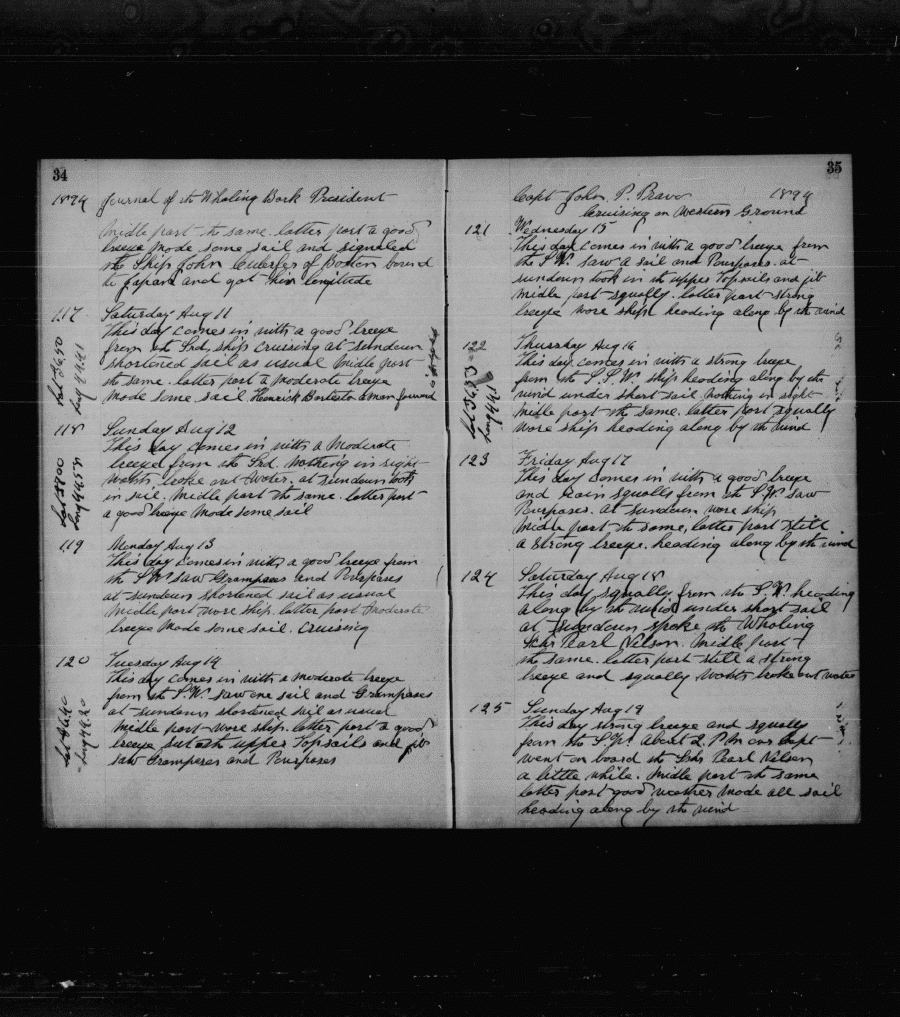 34
1894 Journal of the Whaling Bark President
Middle part the same. latter part a good
breeze made some sail and signaled
the Ship John of Boston bound
to Japan and got their longitude
117 Saturday Aug 11
This day comes in with a good breeze
from the Srd, ship cruising at sundown
shortened sail as usual Middle part
the same. latter part a moderate breeze
made some sail Heinrick a man forward
118 Sunday Aug 12
This day comes in with a Moderate
breeze from the Srd. Nothing in sight
watch broke out Water. at sundown took
in sail. Middle part the same. latter part
a good breeze made some sail
Lat 3700
119 Monday Aug 13
This day comes in with a good breeze from
the SW saw Grampases and Porpases
at sundown shortened sail as usual
Middle part wore ship. latter part moderate
breeze made some sail. Cruising
120 Tuesday Aug 14
This day comes in with a moderate breeze
from the S.W. saw one sail and Grampases
at sundown shortened sail as usual
Middle part wore ship. latter part a good
breeze sat the upper Topsails and jib
saw Grampases and Porpases
35
Capt John P. Pravo 1894
Cruising on Western Ground
121 Wednesday 15
This day comes in with a good breeze from
the S.W. saw a sail and Pourpases. at
sundown took in the upper Topsails and jib
Middle part squally. latter part strong
breeze wore ship heading along by the wind
122 Thursday Aug 16
This day comes in with a strong breeze
from the S.S.W. ship heading along by the
wind under short sail nothing in sight
midle part the same. latter part squally
wore ship heading along by the wind
123 Friday Aug 17
This day comes in with a good breeze
and rain squalls from the S.W. saw
Pourpases. at sundown wore ship
Middle part the same, latter part still
a strong breeze. heading along by the wind
124 Saturday Aug 18
This day squally from the S.W. heading
along by the wind under short sail
at sundown spoke the Whaling
Schr Pearl Nilson. Middle part
the same. latter part still a strong
breeze and squally watch broke out water
125 Sunday Aug 19
This day strong breeze and squally
from the S.W. about 2 P M our Capt
went on board the Schr Pearl Nilson
a little while. Middle part the same
latter part good weather made all sail
heading along by the wind